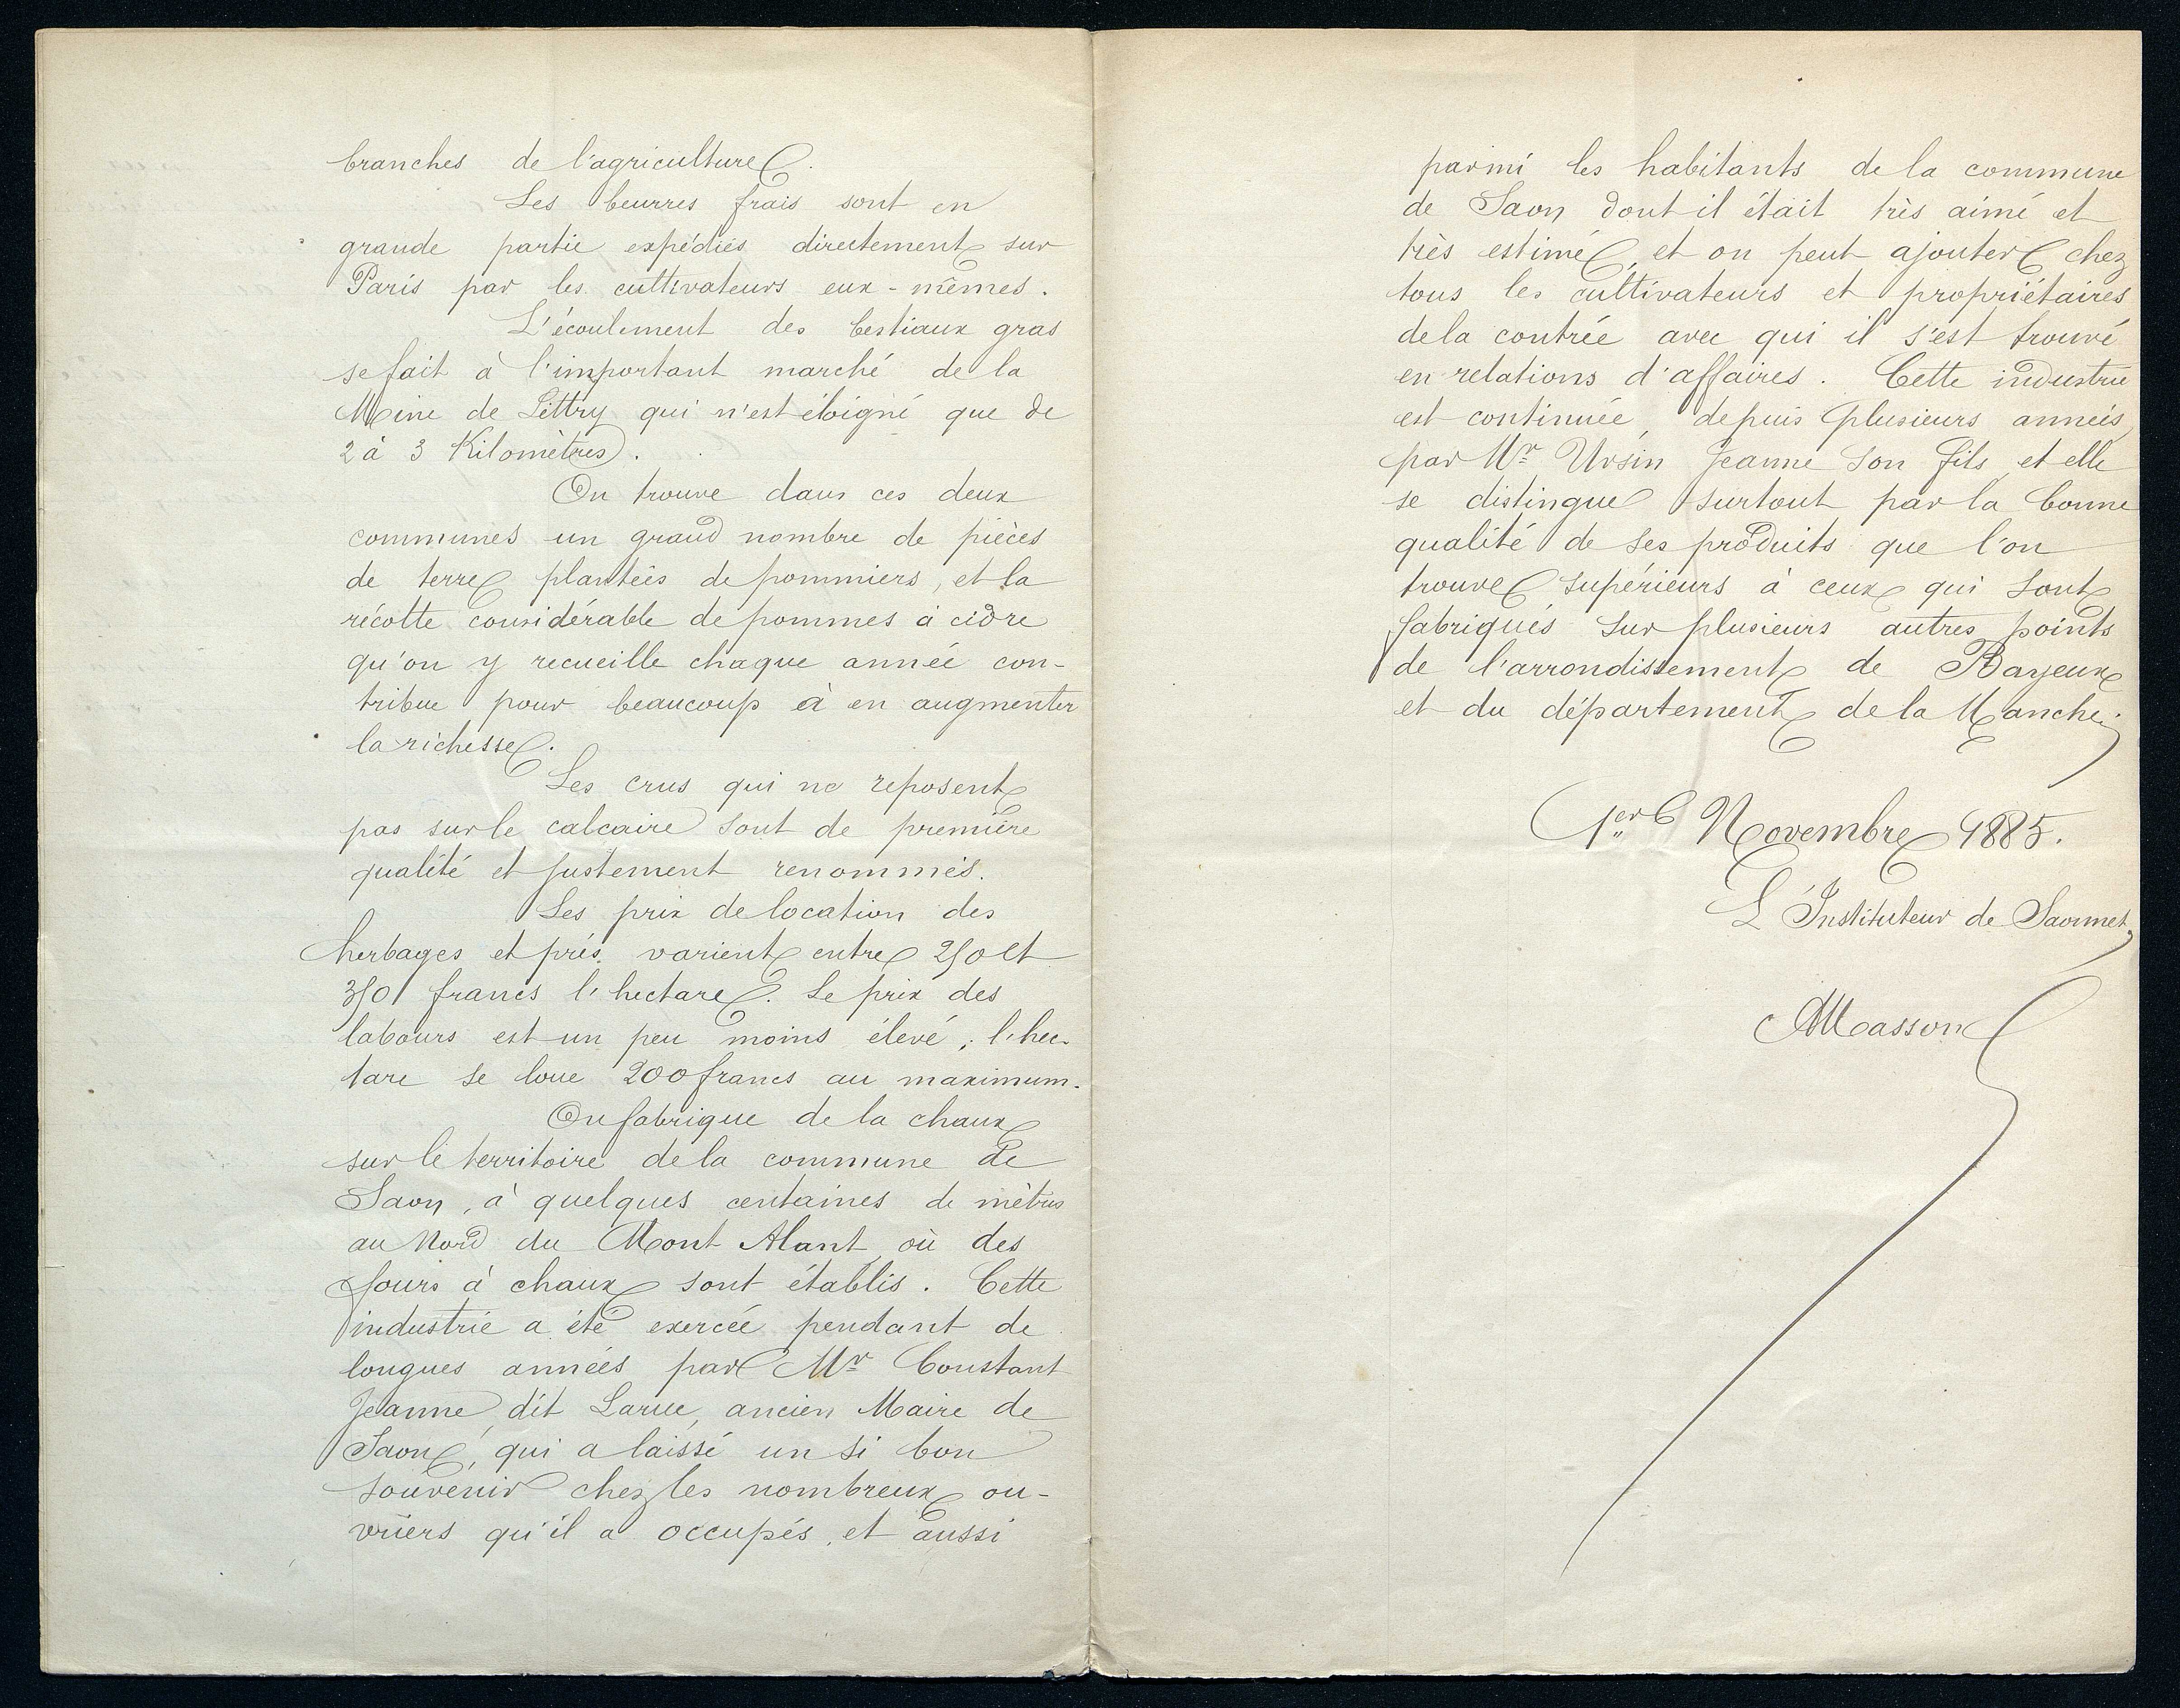 branches de l'agriculture.
Les beurres frais sont en
grande partie expédiés directement sur
Paris par les cultivateurs eux-mêmes.
L'écoulement des bestiaux gras
se fait à l'important marché de la
Mine de Littry qui n'est éloigné que de
2 à 3 Kilomètres.
On trouve dans ces deux
communes un grand nombre de pièces
de terre plantées de pommiers, et la
récolte considérable de pommes à cidre
qu'on y recueille chaque année con-
tribue pour beaucoup à en augmenter
la richesse.
Les crus qui ne reposent
pas sur le calcaire sont de première
qualité et justement renommés.
Les prix de location des
herbages et prés varient entre 250 et
350 francs l'hectare. Le prix des
labours est un peu moins élevé ; l'hec-
tare se loue 200 francs au maximum.
On fabrique de la chaux
sur le territoire de la commune de
Saon, à quelques centaines de mètres
au Nord du Mont Alant, où des
fours à chaux sont établis. Cette
industrie a été exercée pendant de
longues années par Mr Constant
Jeanne dit Larue, ancien Maire de
Saon, qui a laissé un si bon
souvenir chez les nombreux ou-
vriers qu'il a occupés, et aussi
parmi les habitants de la commune
de Saon dont il était très aimé et
très estimé, et on peut ajouter chez
tous les cultivateurs et propriétaires
de la contrée avec qui il s'est trouvé
en relations d'affaires. Cette industrie
est continuée, depuis plusieurs années,
par Mr Ursin Jeanne son fils, et elle
se distingue surtout par la bonne
qualité de ses produits que l'on
trouve supérieurs à ceux qui sont
fabriqués sur plusieurs autres points
de l'arrondissement de Bayeux
et du département de la Manche.
1er Novembre 1885.
L'Instituteur de Saonnet,
AMasson